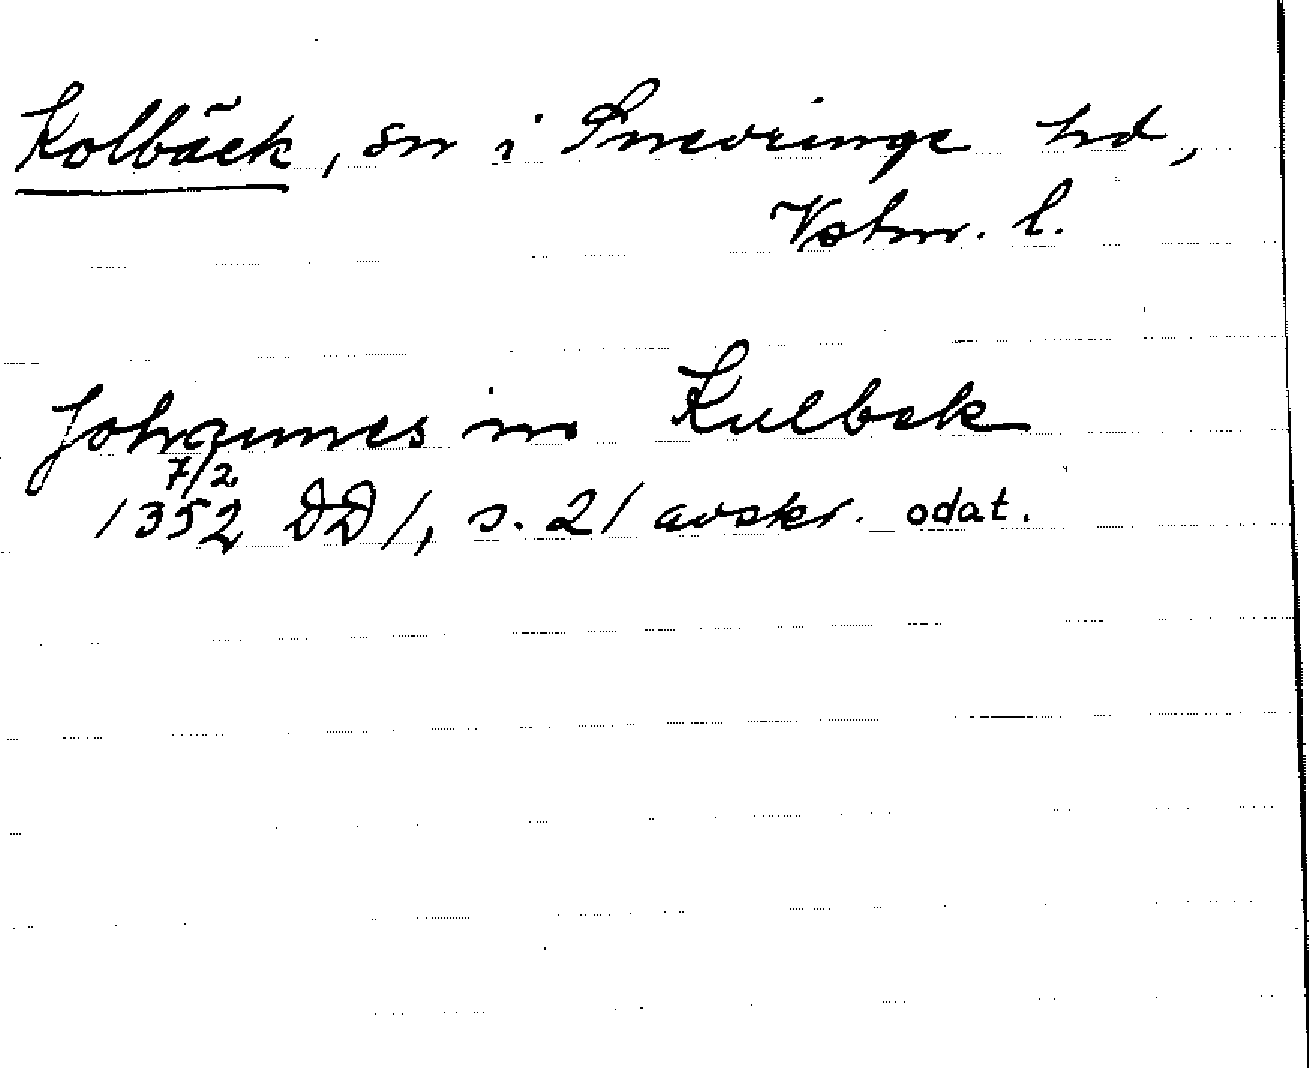 Kolbäck, sn i Snevringe hd,
Vstm. l.
Johannes in Kulbek
7/2
1352 DD 1, s. 21 avskr. odat.